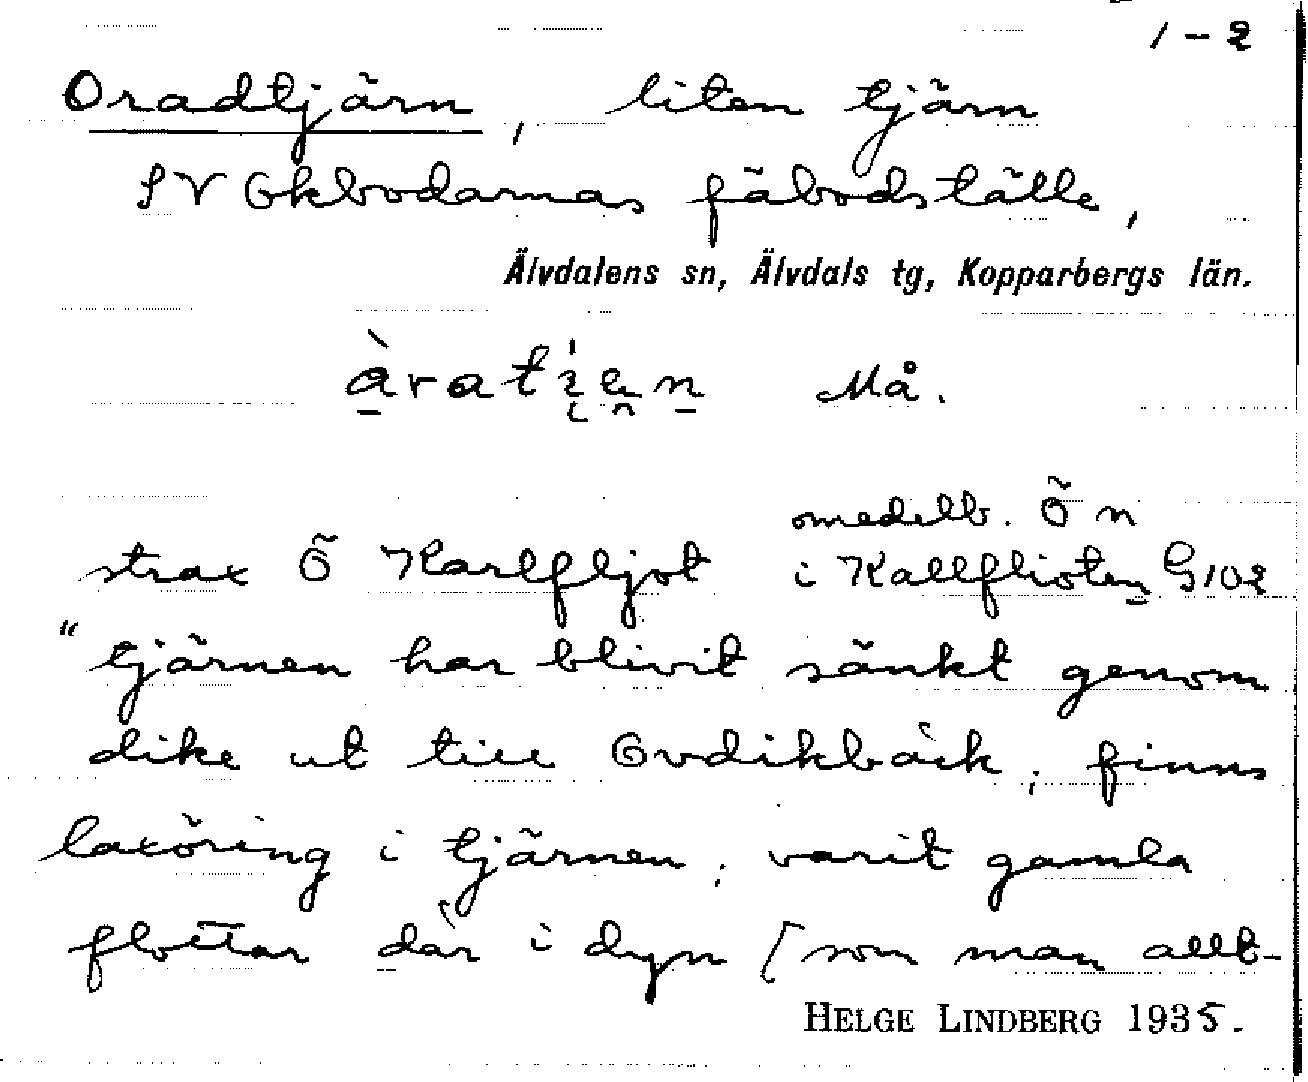 1-2
Oradtjärn, liten tjärn
SV Okbodarnas fäbodställe,
Älvdalens sn, Älvdals tg, Kopparbergs län.
Må.
omedelb. Ö n
strax Ö Karlfljot i Kallflioten G102
"tjärnen har blivit sänkt genom
dike ut till Ovdikbäck; finns
laxöring i tjärnen; varit gamla
flottar där i dyn [som man allt-
HELGE LINDBERG 1935.